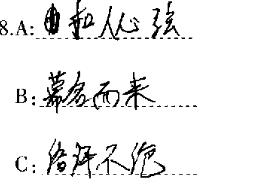 8.A:扣人心弦
B:慕名而来
C:络绎不绝